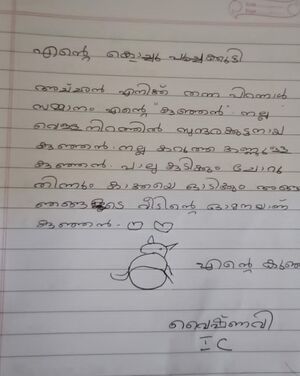 എന്റെ കൊച്ചു പൂച്ചക്കുട്ടി
അച്ഛൻ എനിക്ക് തന്ന പിറന്നാൾ
സമ്മാനം എന്റെ കുഞ്ഞൻ നല്ല
വെള്ളനിറത്തിൽ സുന്ദരക്കുട്ടനായ
കുഞ്ഞൻ. നല്ല കറുത്ത കണ്ണുള്ള
കുഞ്ഞൻ. പാലു കുടിക്കും ചോറു
തിന്നും കാക്കയെ ഓടിക്കും അങ്ങ
ഞങ്ങളുടെ വീടിന്റെ ഓമനയാണ്
കുഞ്ഞൻ.
എന്റെ കുഞ
വൈഷ്ണവി
I C